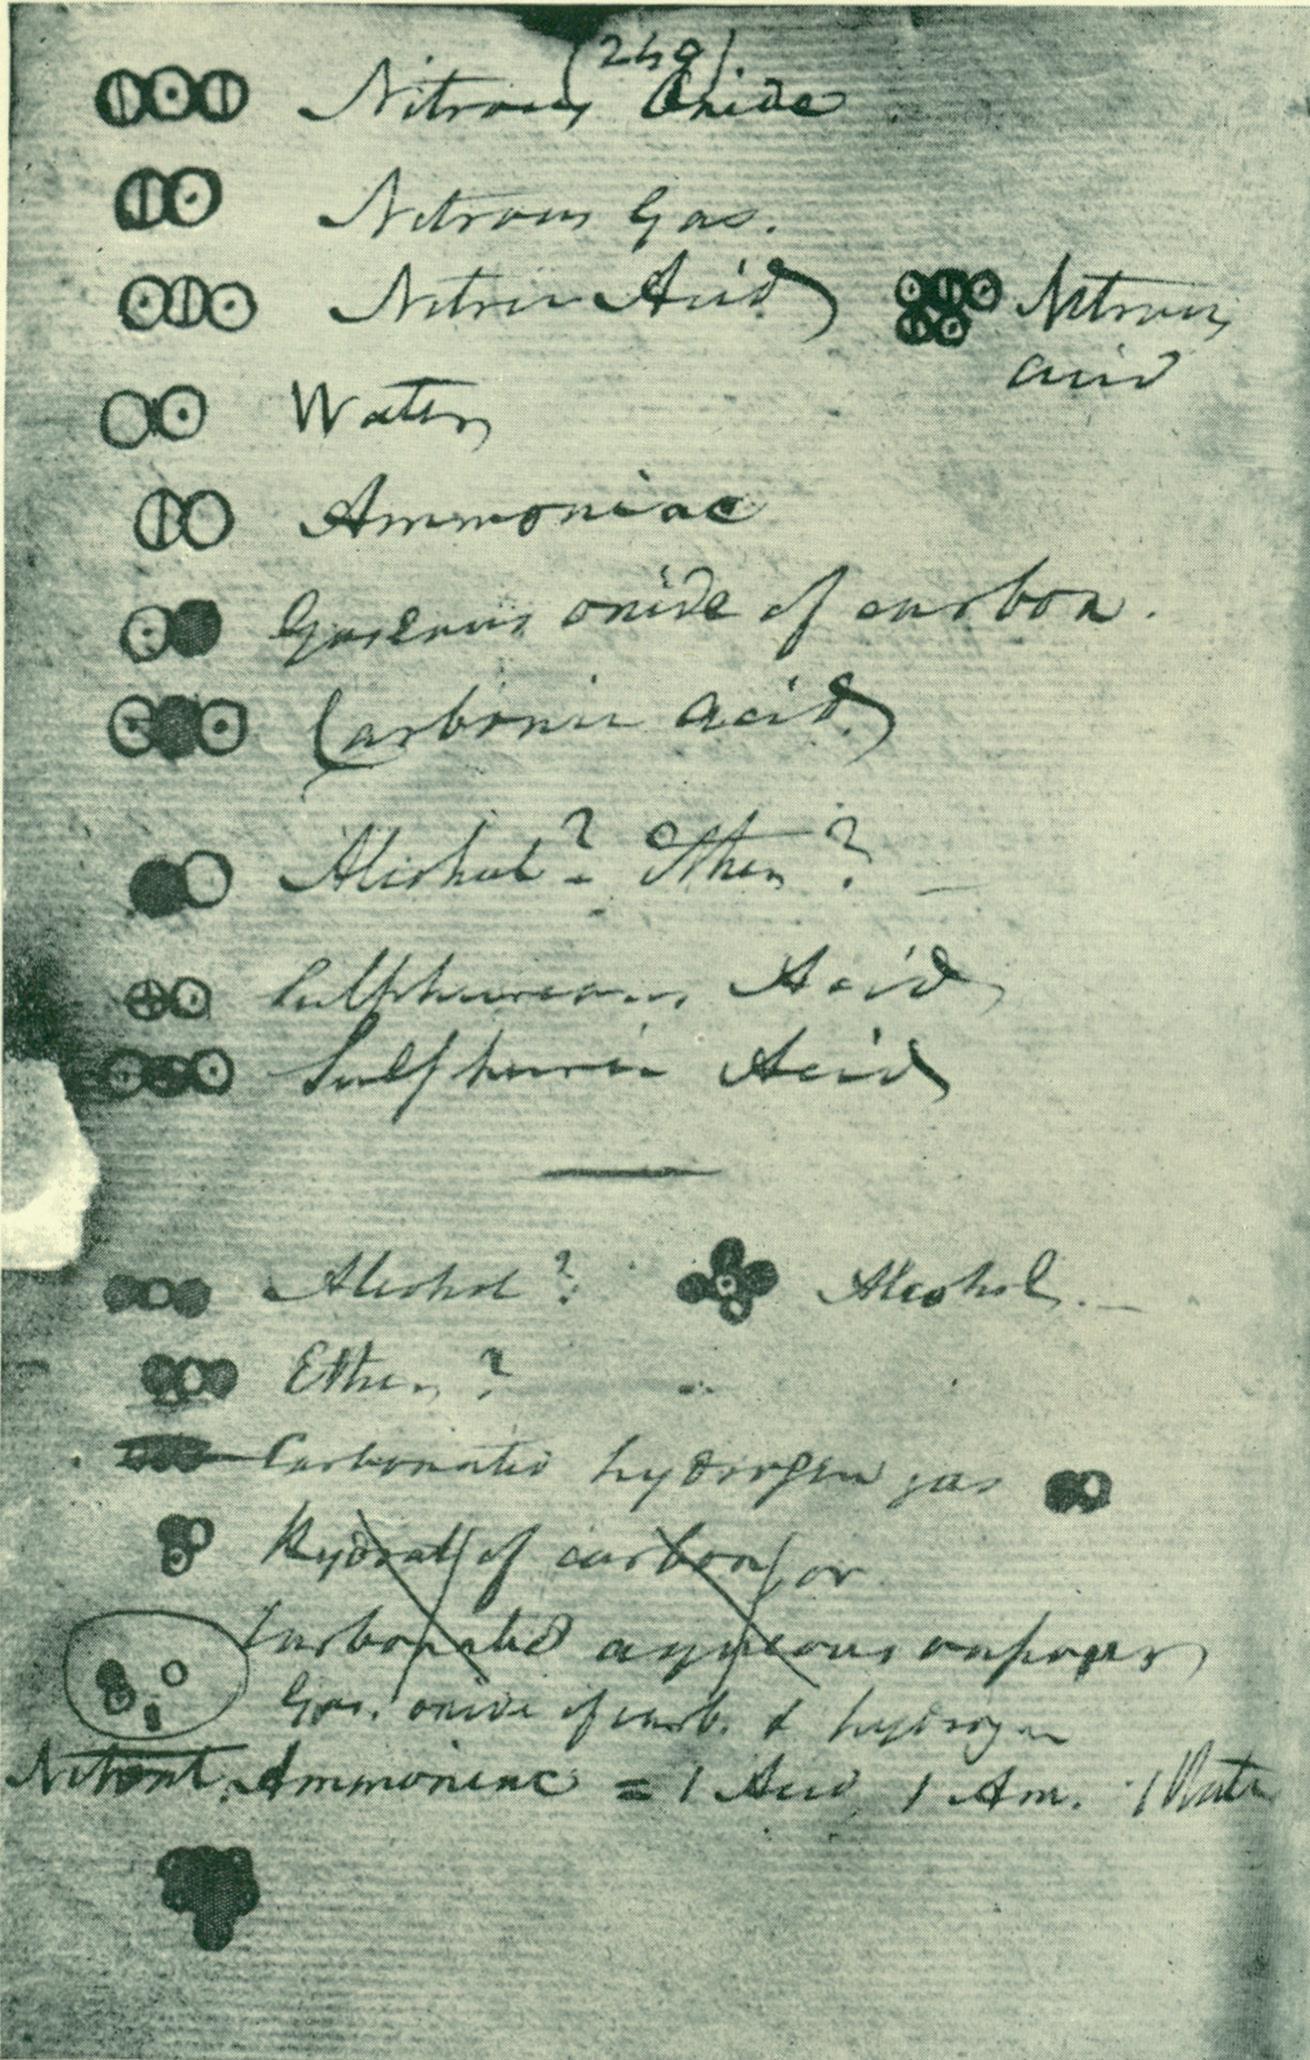 (249).
Nitrous Oxide
Nitrous Gas.
Nitric Acid
Nitrous
acid
Water
Ammoniac
Gaseous oxide of carbon.
Carbonic acid
Alcohol? - Ether? -
Sulphureous Acid
Sulphuric Acid
Alcohol?
Alcohol. -
Ether?
Carbonated hydrogen gas
Hydrat of carbon, or
Carbonated aqueous vapour
Gas. oxide of carb. & hydrogen
Nitrat. Ammoniac = 1 Acid 1 Am. 1 Water